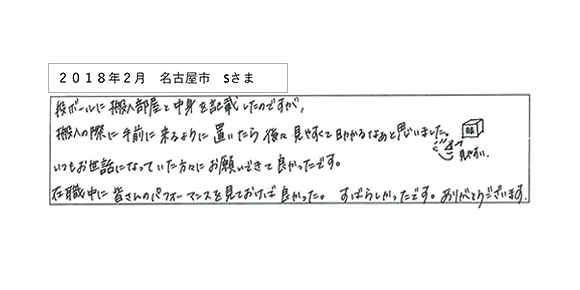 2018年2月　名古屋市　Sさま
段ボールに搬入部屋と中身を記載したのですが、
搬入の際に手前に来るように置いたら後々見やすくて助かるなぁと思いました。
見やすい。
いつもお世話になっていた方々にお願いできて良かったです。
在職中に皆さんのパフォーマンスを見ておけば良かった。　すばらしかったです。ありがとうございます。